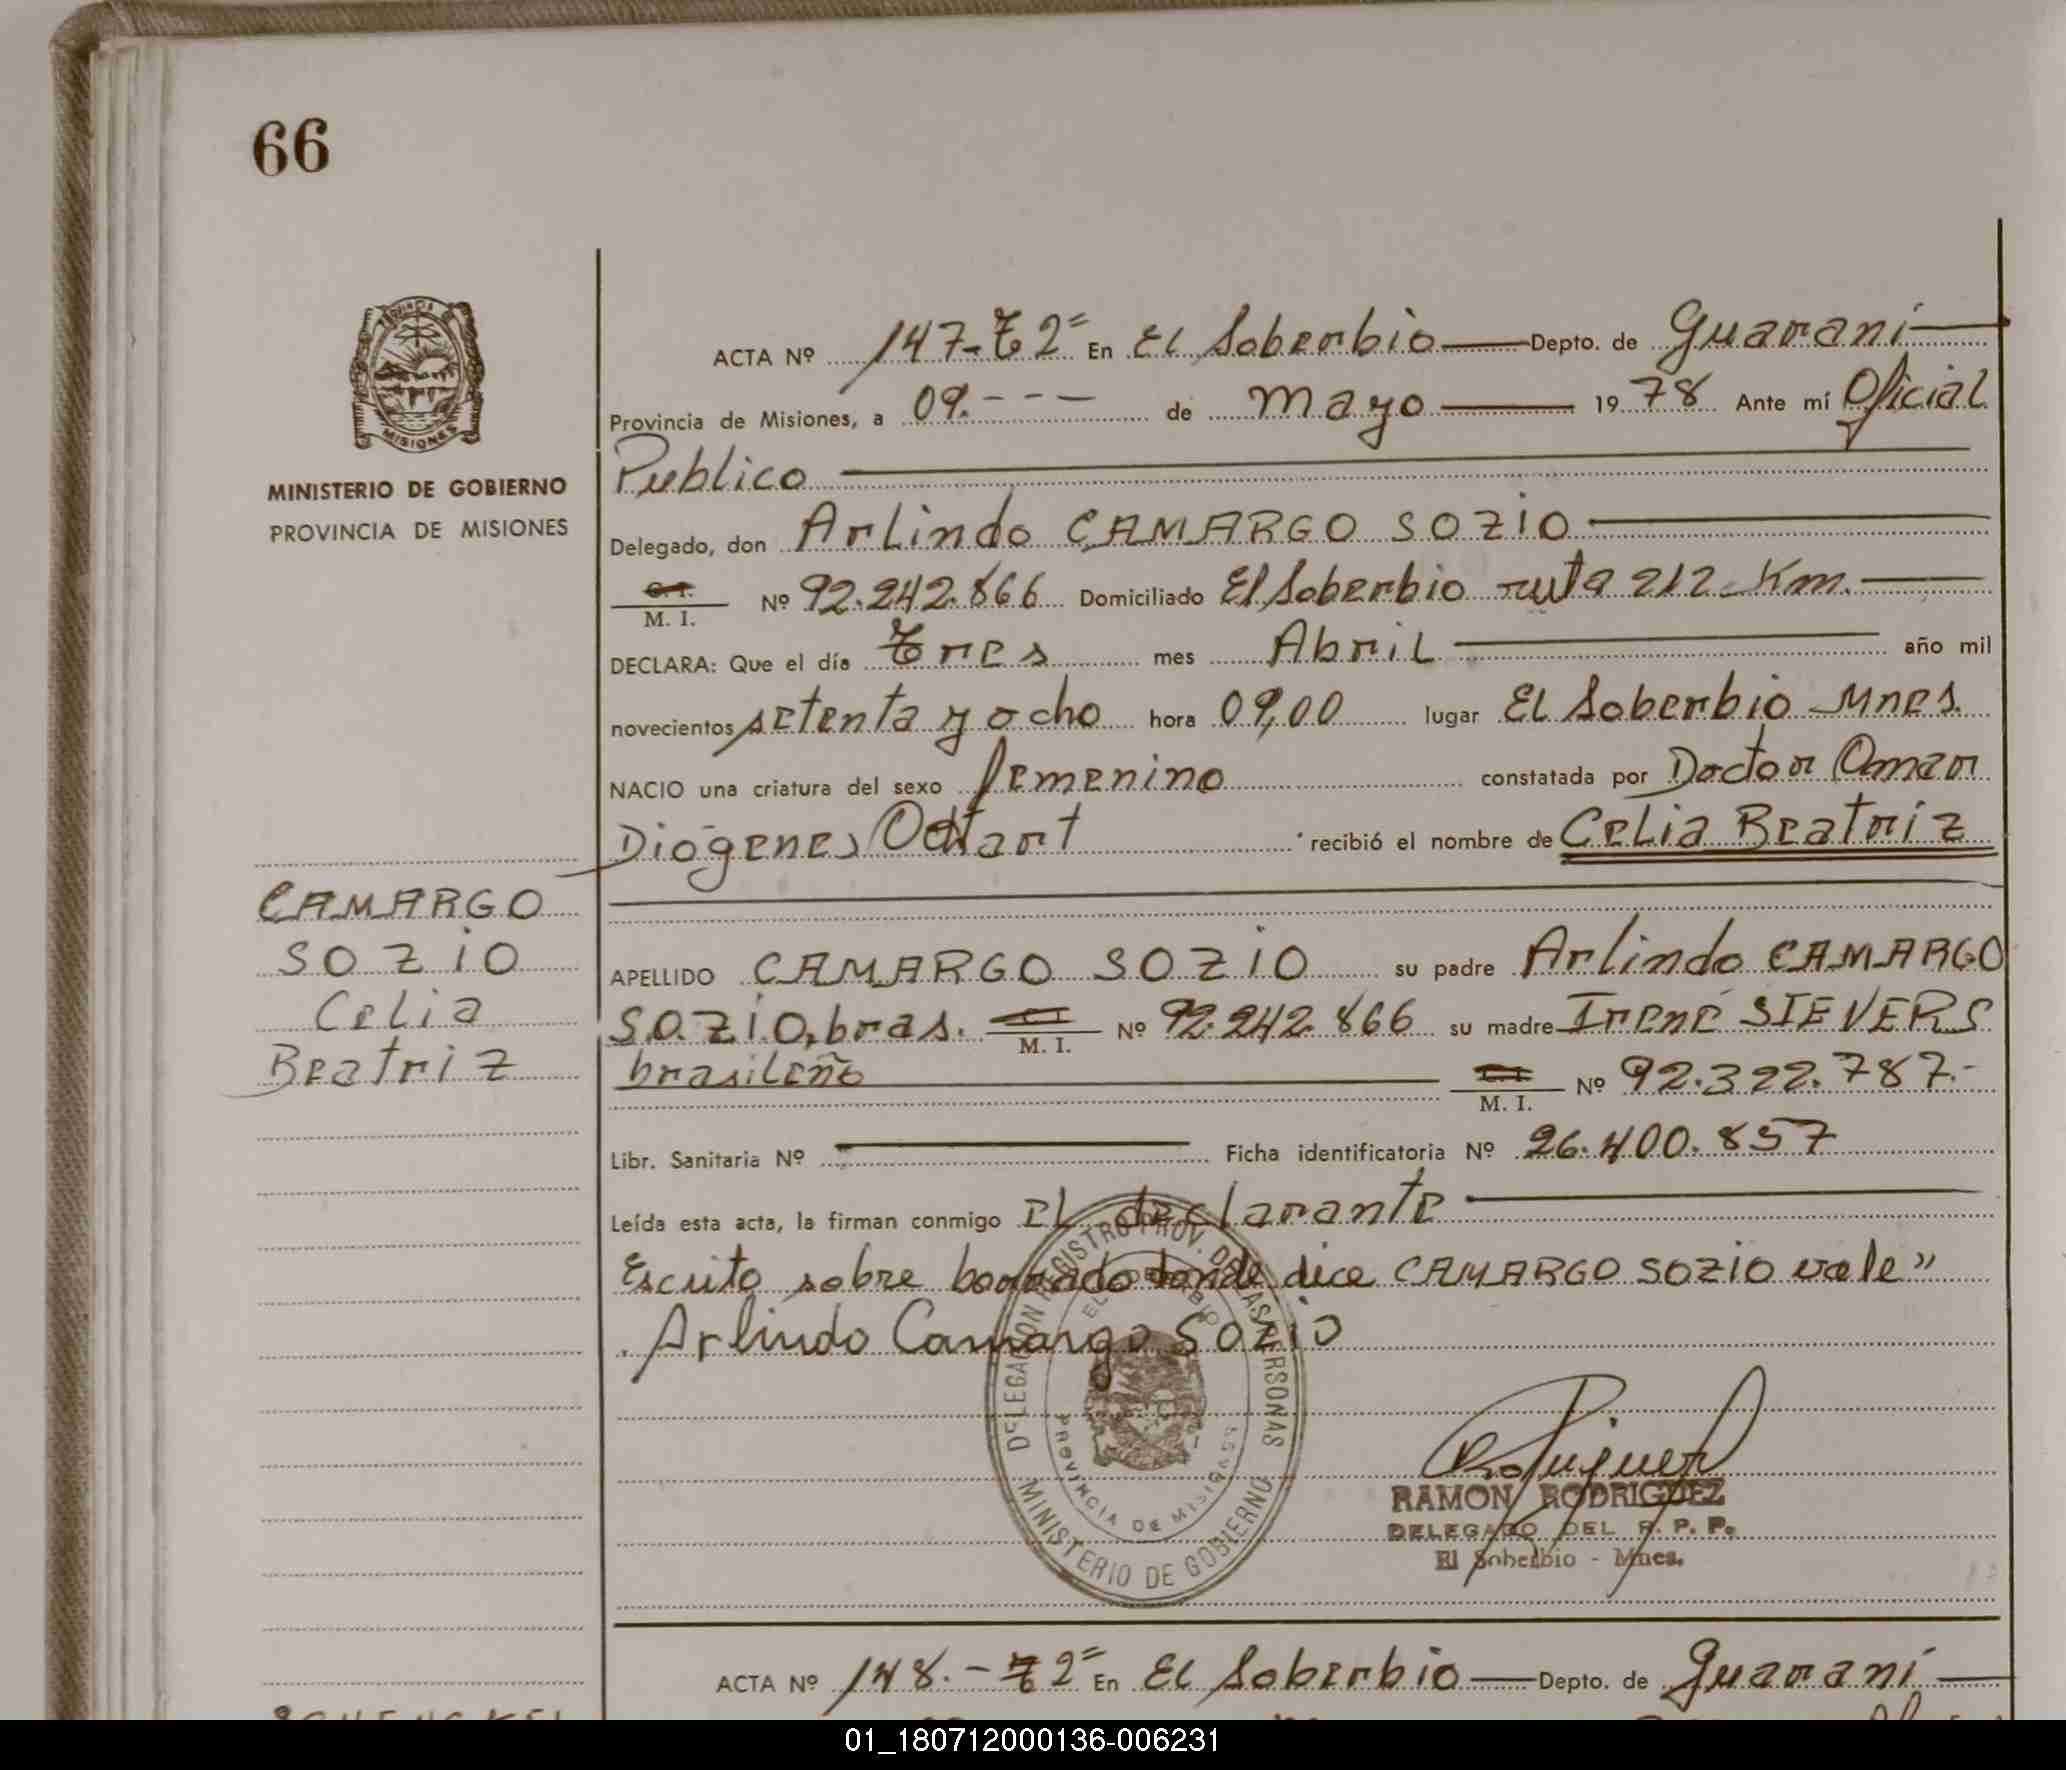 66
MISIONES
MINISTERIO DE GOBIERNO
PROVINCIA DE MISIONES
ACTA Nº 147-T2= En El Soberbio Depto. de Guaraní
Provincia de Misiones, a 09.--- de mayo 1978 Ante mí Oficial
Publico
Delegado, don Arlindo CAMARGO SOZIO
C. I.
M. I. Nº 92.242.866 Domiciliado El Soberbio ruta 212 Km.
DECLARA: Que el día Tres mes Abril año mil
novecientos setenta y ocho hora 09,00 lugar El Soberbio Mnes.
NACIO una criatura del sexo femenino constatada por Doctor Omar
Diógenes recibió el nombre de Celia Beatriz
CAMARGO
SOZIO
Celia
Beatriz
APELLIDO CAMARGO SOZIO su padre Arlindo CAMARGO
SOZIO, bras. C. I. M. I. Nº 92.242.866 su madre Irene SIEVERS
brasileño C. I. M. I. Nº 92.322.787.-
Libr. Sanitaria Nº Ficha identificatoria Nº 26.400.857
Leída esta acta, la firman conmigo El declarante
Escrito sobre borrado donde dice CAMARGO SOZIO vale"
Arlindo Camargo Sozio
DELEGACION REGISTRO PROV. DE LAS PERSONAS
EL SOBERBIO
PROVINCIA DE MISIONES
MINISTERIO DE GOBIERNO
RAMON RODRIGUEZ
DELEGADO DEL R. P. P.
El Soberbio - Mnes.
ACTA Nº 148.-T2= En El Soberbio Depto. de Guaraní
01_180712000136-006231